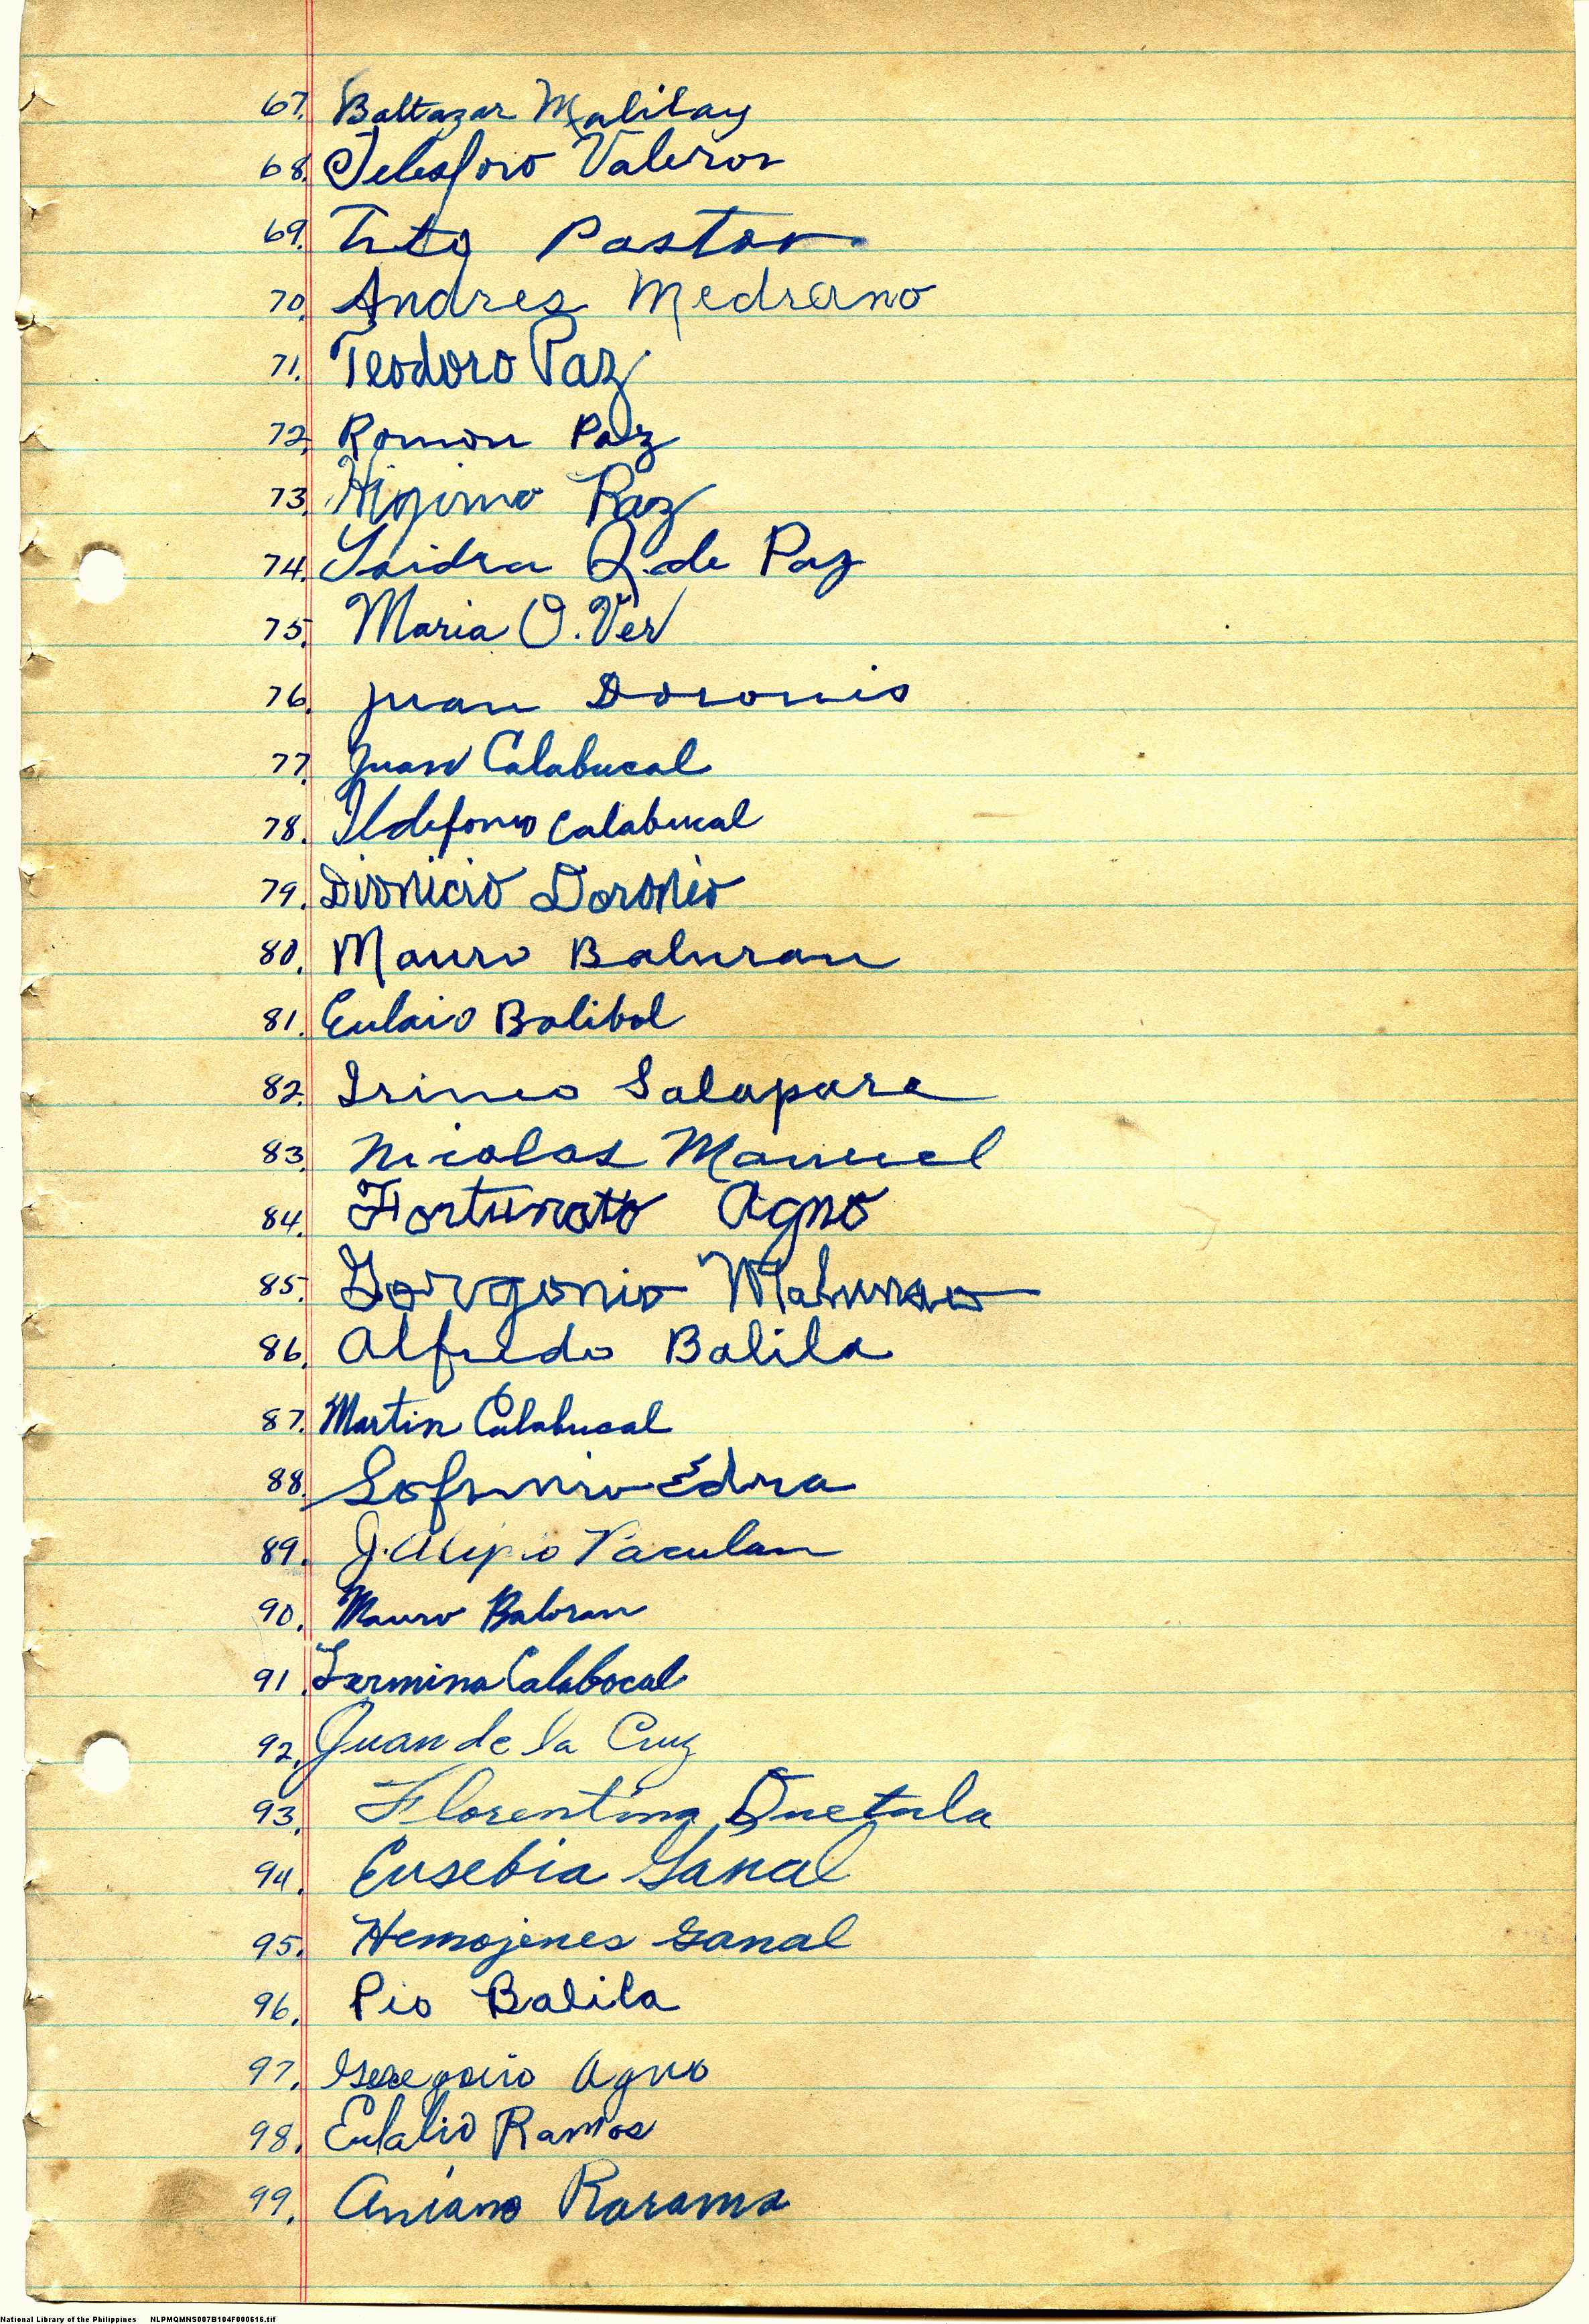 67. Baltazar Malilay
68. Telesforo Valeros
69. Tito Pastor
70. Andres Medrano
71. Teodoro Paz
72. Roman Paz
73. Higino Paz
74. Isidra Q. de Paz
75. Maria O. Ver
76. Juan Doronio
77. Juan Calabucal
78. Ildefonso Calabucal
79. Dionicio Doronio
80. Mauro Baluran
81. Eulaio Balibol
82. Irineo Salapare
83. Nicolas Manuel
84. Fortunato Agno
85. Gorgonio
86. Alfredo Balila
87. Martin Calabucal
88. Sofronio Edra
89. J. Alipio Vaculan
90. Mauro Baloran
91. Fermina Calabocal
92. Juan de la Cruz
93. Florentina Quetula
94. Eusebia Ganal
95. Hemojenes Ganal
96. Pio Balila
97. Gregorio Agno
98. Eulalio Ramos
99. Aniano Rarama
National Library of the Philippines NLPMQMNS007B104F000616.tif